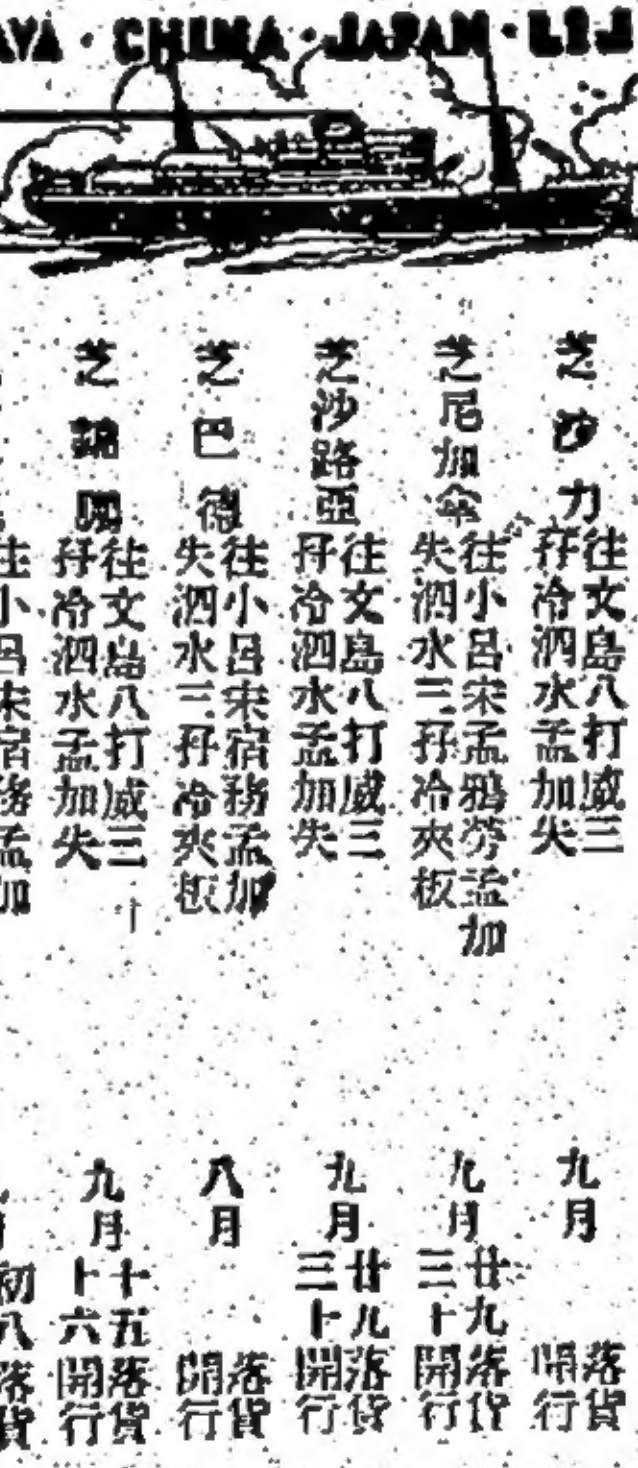 AVA · CHINA · JAPAN · LIJ
芝沙力
往文島八打威三
孖冷泗水孟加失
九月
落貨
開行
芝尼加傘
往小呂宋孟鴉勞孟加
失泗水三孖冷夾板
九月
廿九落貨
三十開行
芝沙路亞
往文島八打威三
孖冷泗水孟加失
九月
廿九落貨
三十開行
芝巴德
往小呂宋宿務孟加
失泗水三孖冷夾板
八月
落貨
開行
芝
往文島八打威三
孖冷泗水孟加失
九月
十五落貨
十六開行
往小呂宋宿務孟加
初八落貨